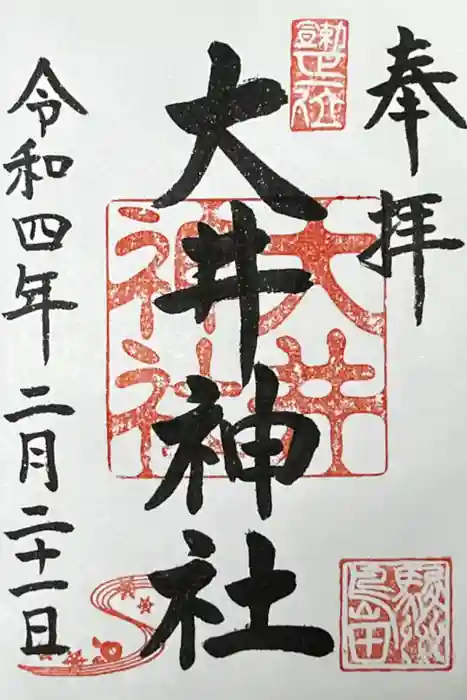 奉拝
大井神社
令和四年二月二十一日
大井
神社
駿州
島田